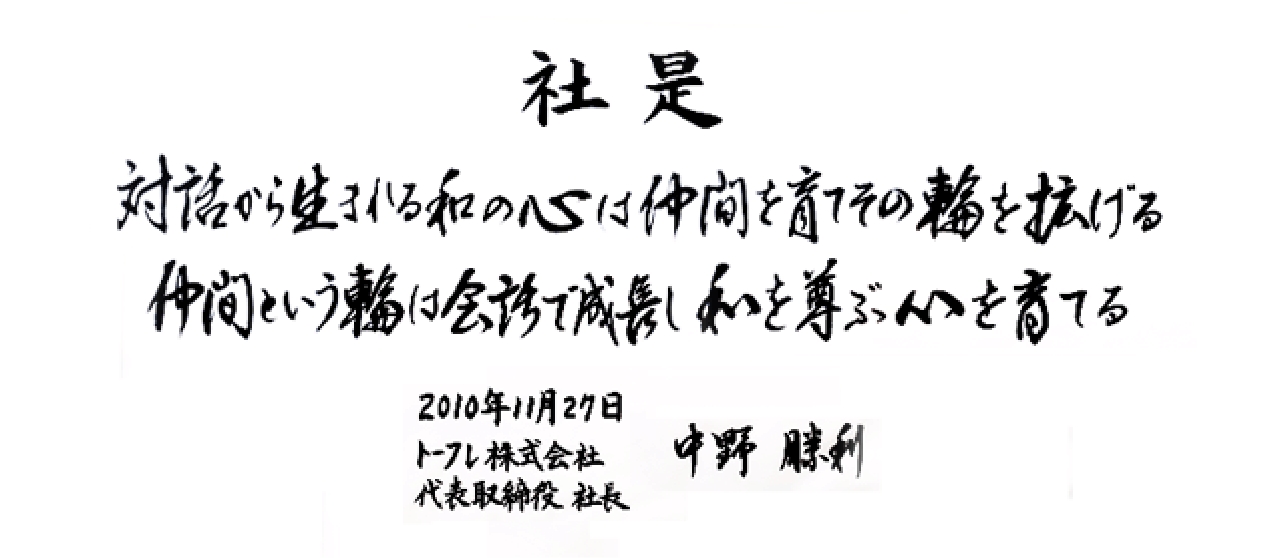 社是
対話から生まれる和の心は仲間を育てその輪を拡げる
仲間という輪は会話で成長し和を尊ぶ心を育てる
2010年11月27日
トーフレ株式会社
代表取締役 社長
中野 勝利